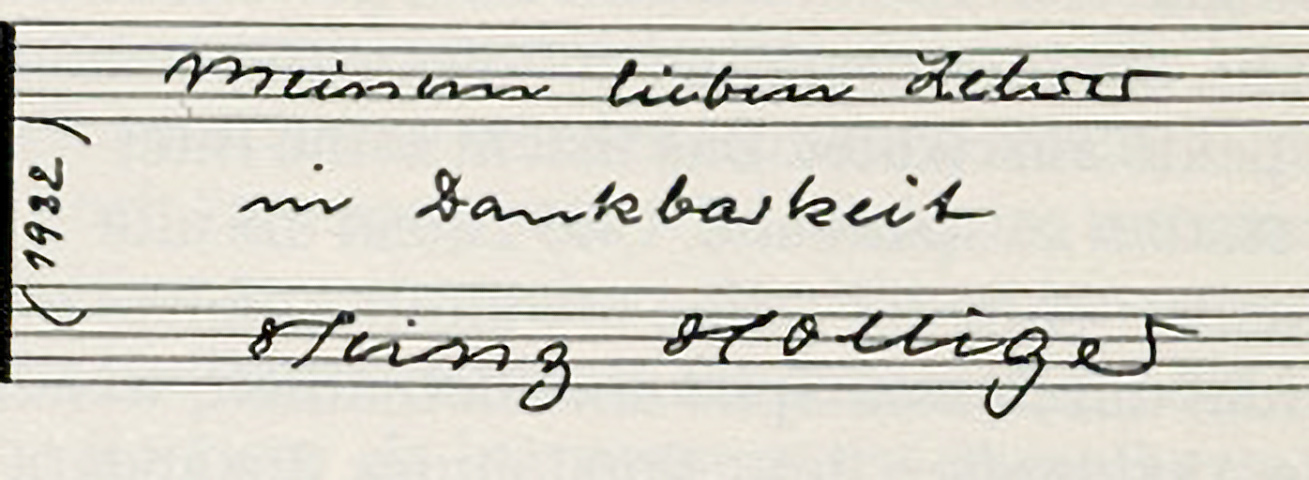 Meinem lieben Lehrer
in Dankbarkeit
Heinz Holliger
(1932)